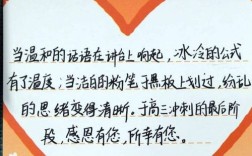 当温和的话语在讲台上响起，冰冷的公式
有了温度；当洁白的粉笔于黑板上划过，纷乱
的思绪变得清晰。于高三冲刺的最后阶
段，感恩有您，所幸有您。